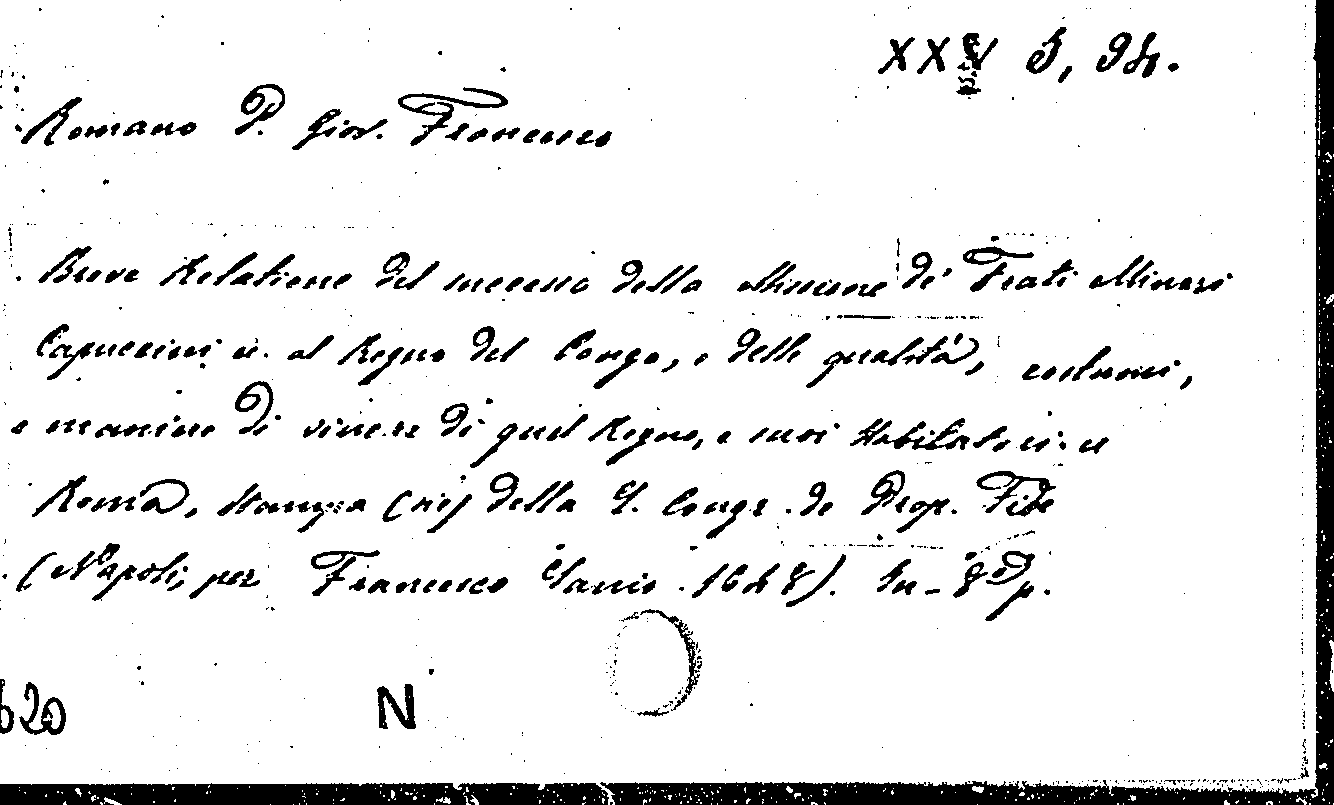 XXV B, 94.
Romano P. Giov. Francesco
Breve Relatione del successo della Missione de' Frati Minori
Capuccini al Regno del Congo, e delle qualità, costumi,
e maniere di vivere di quel Regno, e suoi Habitatori.
Roma, Stampa (sic) della S. Congr. de Prop. Fide
(Napoli, per Francesco Savio 1648). In-8° p.
620 N